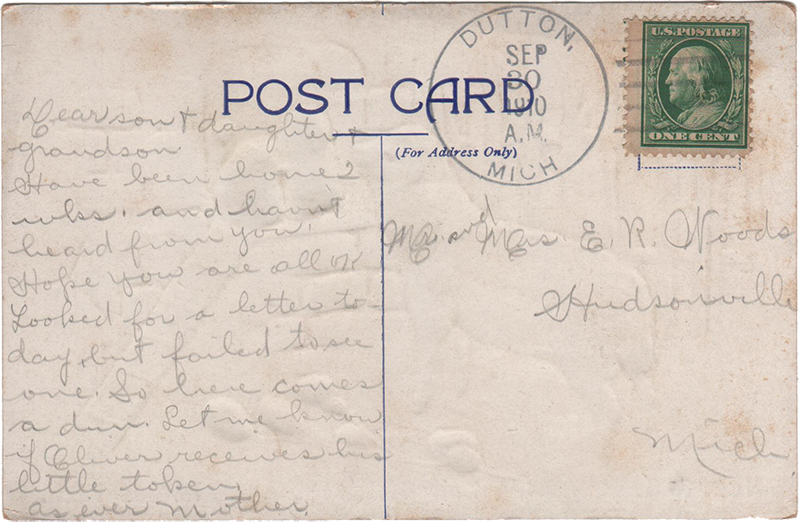 POST CARD
(For Address Only)
DUTTON,
SEP
30
1910
A.M.
MICH
U.S. POSTAGE
ONE CENT
Dear son & daughter &
grandson
Have been home 2
wks. and havn't
heard from you.
Hope you are all OK
Looked for a letter to-
day, but failed to see
one. So here comes
a dun. Let me know
if Oliver receives his
little token,
as ever Mother.
Mr. and Mrs. E. R. Woods
Hudsonville
Mich